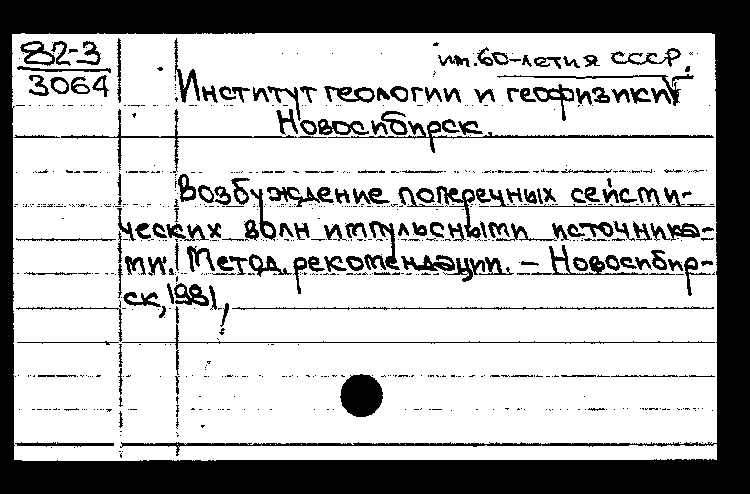 82-3
3064
им. 60-летия СССР.
Институт геологии и геофизики
Новосибирск.
Возбуждение поперечных сейсми-
ческих волн импульсными источника-
ми. Метод. рекомендации. – Новосибир-
ск, 1981,